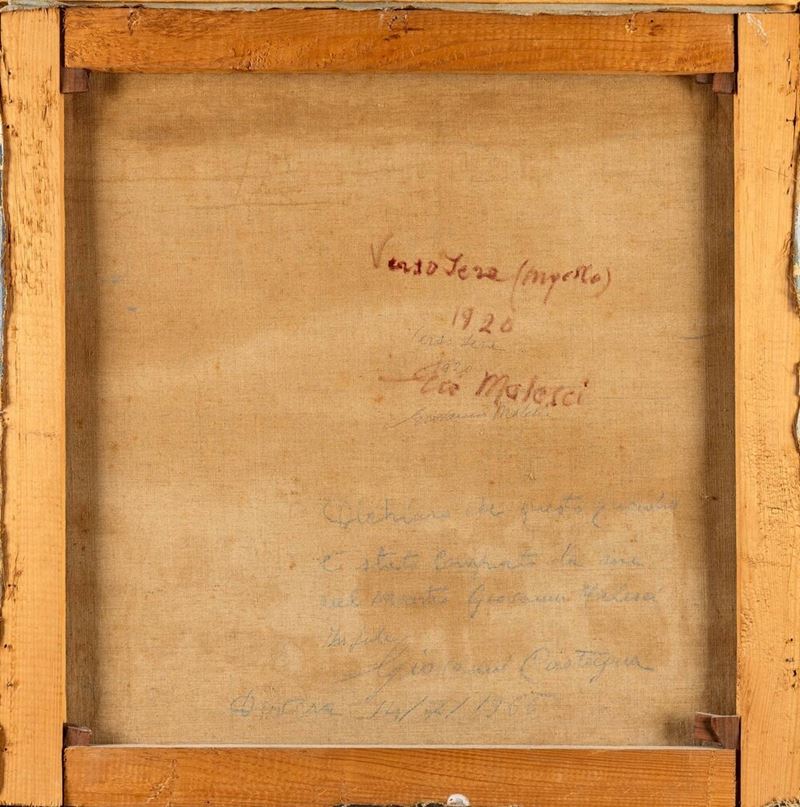 Verso Sera (Mugello)
1920
Verso Sera
1920
Gio Malesci
Giovanni Malesci
Dichiaro che questo quadro
è stato comprato da me
del maestro Giovanni Malesci
In fede
Giovanni Castagna
14/ /1966